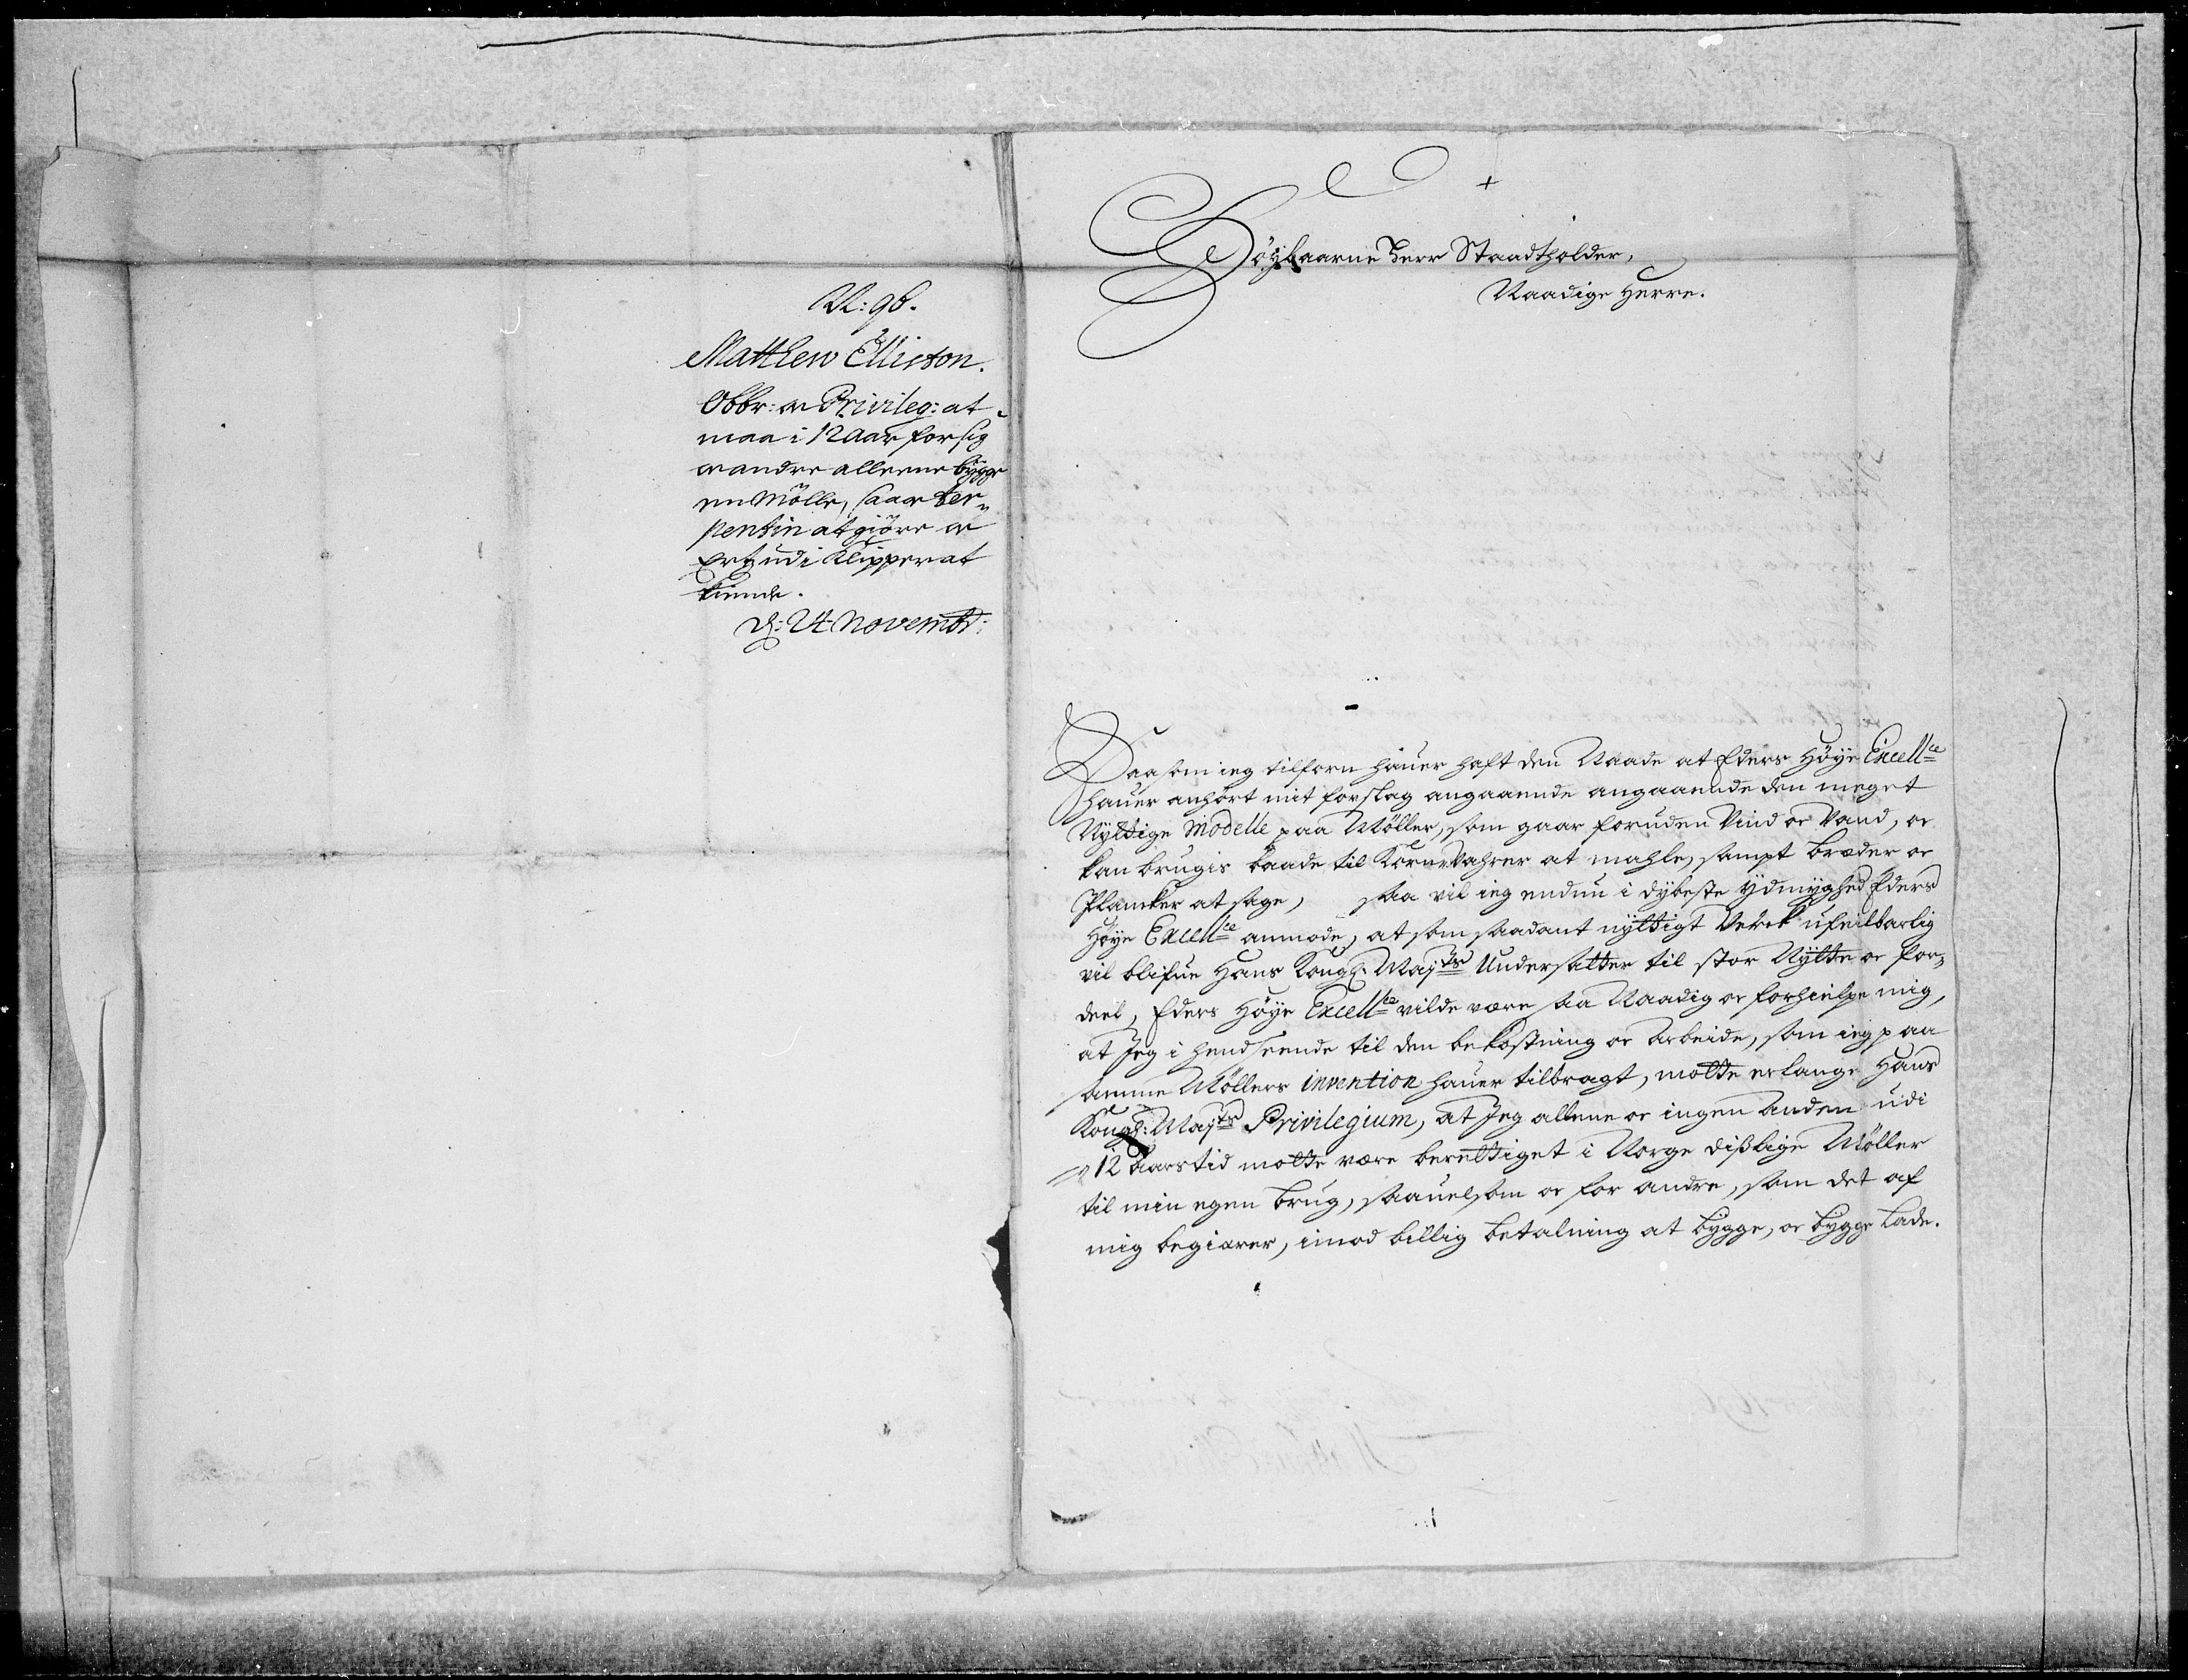 N: 96.
Matthew Ellicton.
Obbr: or Privileg: at
maa i 12 Aar for sig
or andre alleene bygge
en Mölle, saa or ter„
pentin at giöre or
Ertz udi Klipper at
kiende.
d: 24 Novembr:
Höybaarne Herr Staadtholder,
Naadige Herre.
Saasom ieg tilforn hauer haft den Naade at Eders Höye Excellce
hauer anhört mit forslag angaaende angaaende den meget
Nyttige Modelle paa Möller, som gaar foruden Vind or Vand, or
kan brugis baade til Korn Vahrer at mahle, sampt bræder or
Plancker at sage, saa vil ieg endnu i dybeste Ydmyghed Eders
Höye Excellce anmode, at som saadant nyttigt Verck ufeilbarlig
vil blifue Hans Kongl: Majts Undersatter til stor Nytte or for„
deel, Eders Höye Excellce vilde være saa Naadig or forhielpe mig,
at Jeg i henseende til den bekostning or Arbeide, som ieg paa
samme Möllers invention hauer tilbragt, motte erlange Hans
Kongl: Majts Privilegium, at Jeg allene or ingen anden udi
12 Aarstid motte være berettiget i Norge dißlige Möller
til min egen brug, saauelsom or for andre, som det af
mig begiærer, imod billig betalning at bygge, or bygge lade.